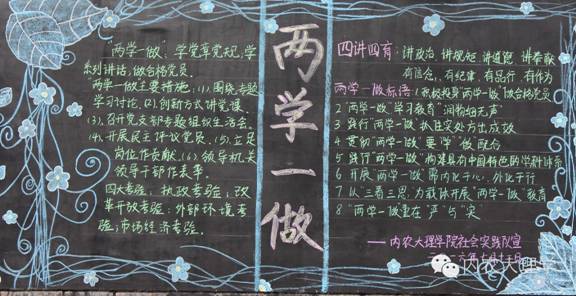 "两学一做":学党章党规,学
系列讲话,做合格党员.
两学一做主要措施:(1).围绕专题
学习讨论.(2).创新方式讲党课.
(3).召开党支部专题组织生活会.
(4).开展民主评议党员.(5).立足
岗位作贡献.(6).领导机关
领导干部作表率.
四大考验:执政考验;改
革开放考验;外部环境考
验;市场经济考验.
两学一做
四讲四有:讲政治,讲规矩,讲道德,讲奉献
有信念,有纪律,有品行,有作为
两学一做标语:1积极投身"两学一做"做合格党员
2"两学一做"学习教育"润物细无声"
3践行"两学一做"抓住实处方出成效
4贯彻"两学一做"要"学""做"融合
5践行"两学一做"构建具有中国特色的学科体系
6开展"两学一做"需内化于心,外化于行
7从"三看三思"为载体开展"两学一做"教育
8"两学一做"重在"严"与"实"
——内农大理学院社会实践队宣
内农大理学